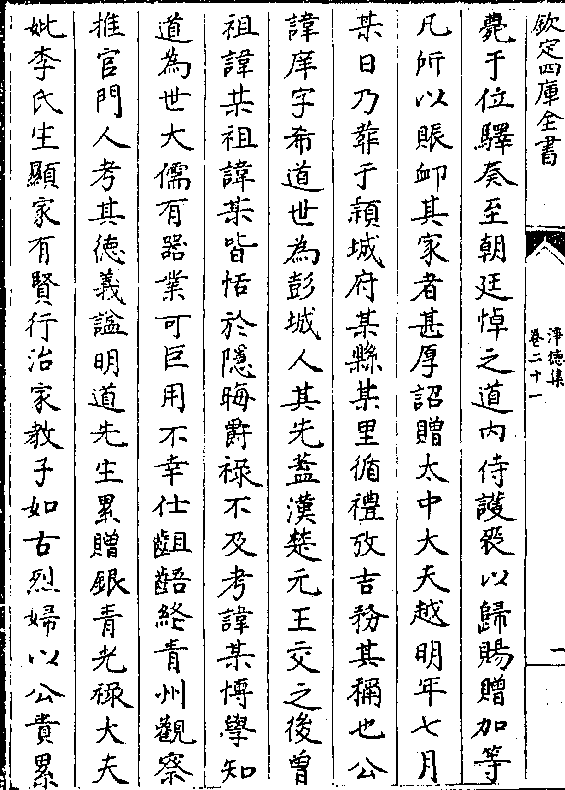 欽定四庫全書
淨德集
卷二十一
一
薨于位驛奏至朝廷悼之道内侍護喪以歸賜贈加等
凡所以賑卹其家者甚厚詔贈太中大夫越明年七月
某日乃葬于潁城府某縣某里循禮攷吉務其稱也公
諱庠字希道世為彭城人其先葢漢楚元王交之後曾
祖諱某祖諱某皆恬於隱晦爵祿不及考諱某博學知
道為世大儒有器業可巨用不幸仕齟齬終青州觀察
推官門人考其徳義諡明道先生累贈銀青光祿大夫
妣李氏生顯家有賢行治家教子如古烈婦以公貴累